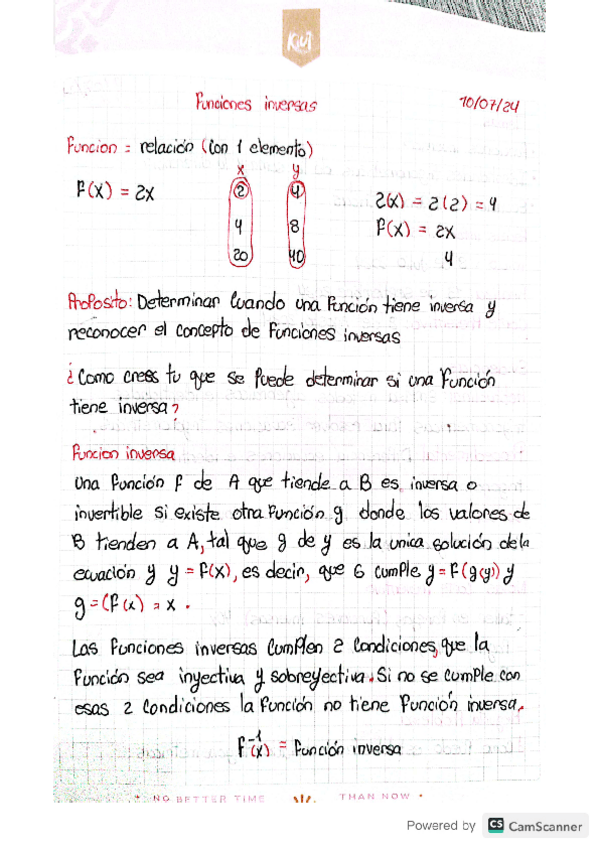 KIUT
Funciones inversas 10/07/24
Funcion = relación (Con 1 elemento)
x y
F(x) = 2x 2 4 2(x) = 2(2) = 4
4 8 F(x) = 2x
20 40 4
Proposito: Determinar Cuando una Función tiene inversa y
reconocer el concepto de Funciones inversas
¿Como crees tu que se Puede determinar si una Función
tiene inversa?
Funcion inversa
Una Función F de A que tiende a B es inversa o
invertible si existe otra Función g donde los valores de
B tienden a A, tal que g de y es la unica solución de la
ecuación y y = F(x), es decir, que G cumple y = F(g(y)) y
g = (F(x) = x .
Las Funciones inversas Cumplen 2 Condiciones, que la
Función sea inyectiva y sobreyectiva. Si no se cumple con
esas 2 Condiciones la Función no tiene Función inversa.
F⁻¹(x) = Función inversa
NO BETTER TIME THAN NOW
Powered by CS CamScanner